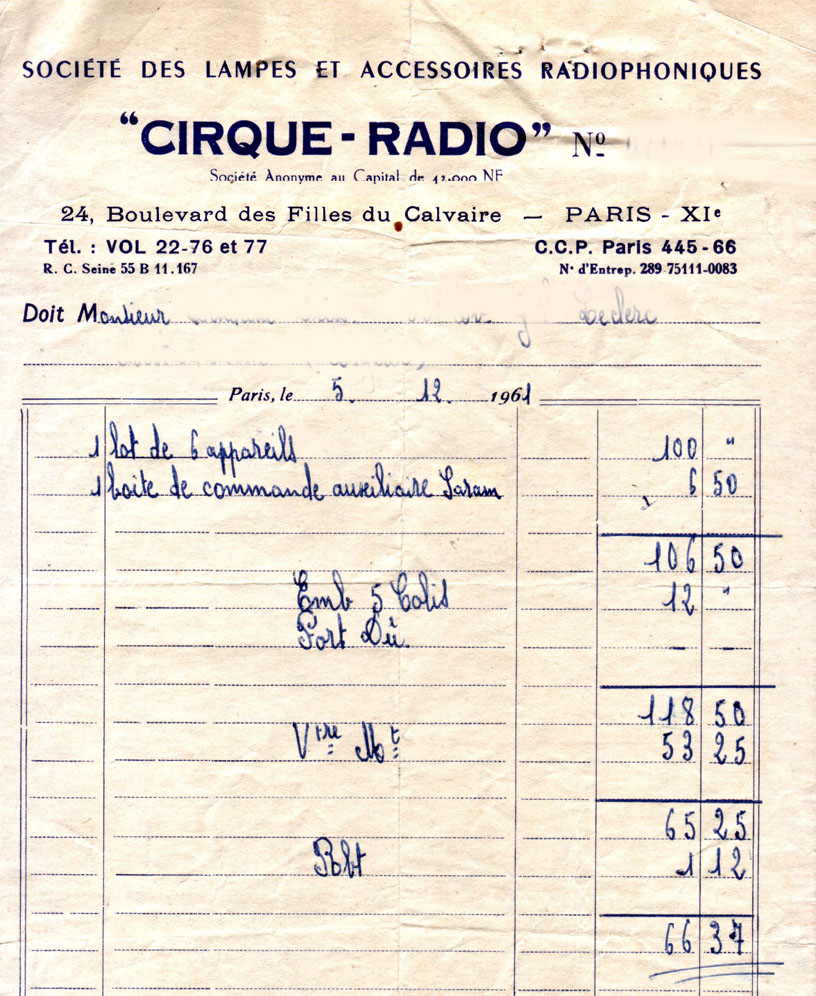 SOCIÉTÉ DES LAMPES ET ACCESSOIRES RADIOPHONIQUES
“CIRQUE-RADIO” Nº
Société Anonyme au Capital de 42.000 NF
24, Boulevard des Filles du Calvaire — PARIS - XIe
Tél. : VOL 22-76 et 77 C.C.P. Paris 445-66
R. C. Seine 55 B 11.167 N° d'Entrep. 289-75111-0083
Doit Monsieur Leclerc
Paris, le 5. 12. 1961
1 lot de 6 appareils 100 "
1 boite de commande auxiliaire Saram 6 50
106 50
Emb 5 Colis 12 "
Port Dû. — —
118 50
Vtre Mt 53 25
65 25
Rbt 1 12
66 37